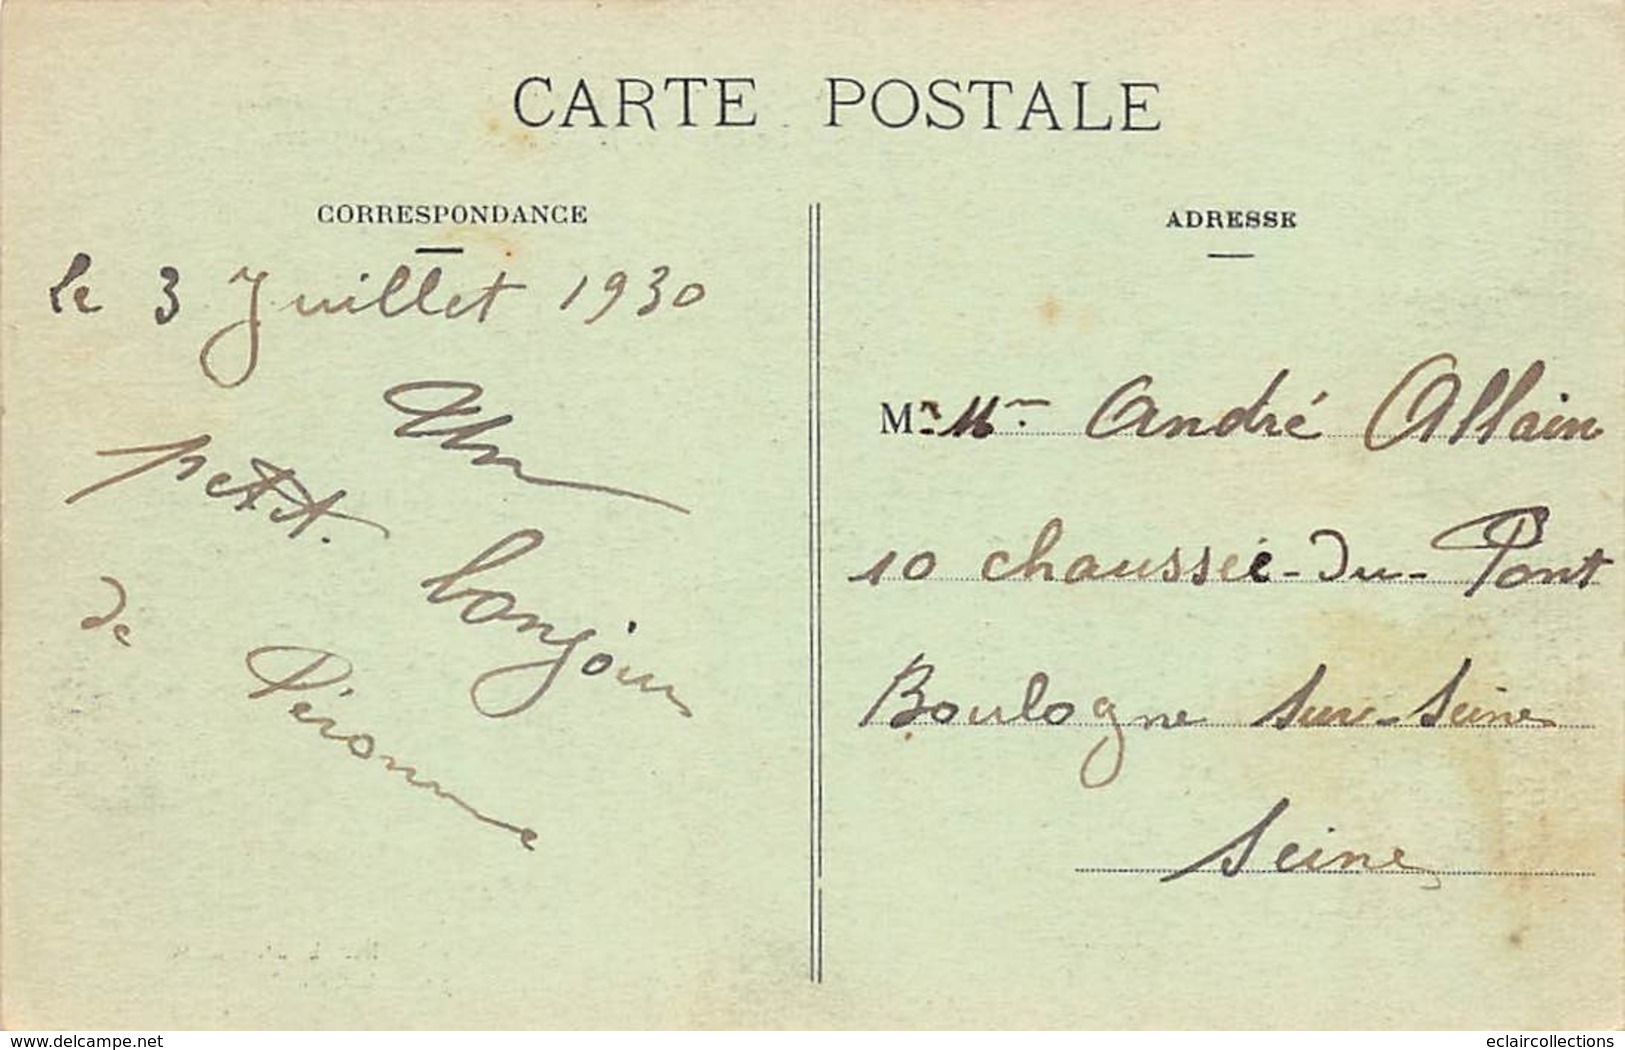 CARTE POSTALE
CORRESPONDANCE
le 3 Juillet 1930
Un
petit
bonjour
de
Péronne
ADRESSE
M. Mr André Allain
10 chaussée-du-Pont
Boulogne sur-Seine
Seine
www.delcampe.net
eclaircollections